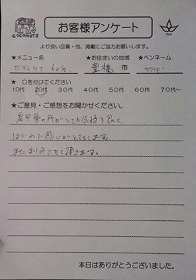 お客様アンケート
より良い品質・他、掲載にご協力お願いします。
★メニュー名 ★お住まいの地域 ★ペンネーム
60分 豊橋 市
★ ○を付けてください
10代 20代 30代 40代 50代 60代 70代〜
★ご意見・ご感想をお聞かせください。
肩甲骨の所がとても気持ち良く
ほぐれた感じがとてもします。
また利用させて頂きます。
本日はありがとうございました。